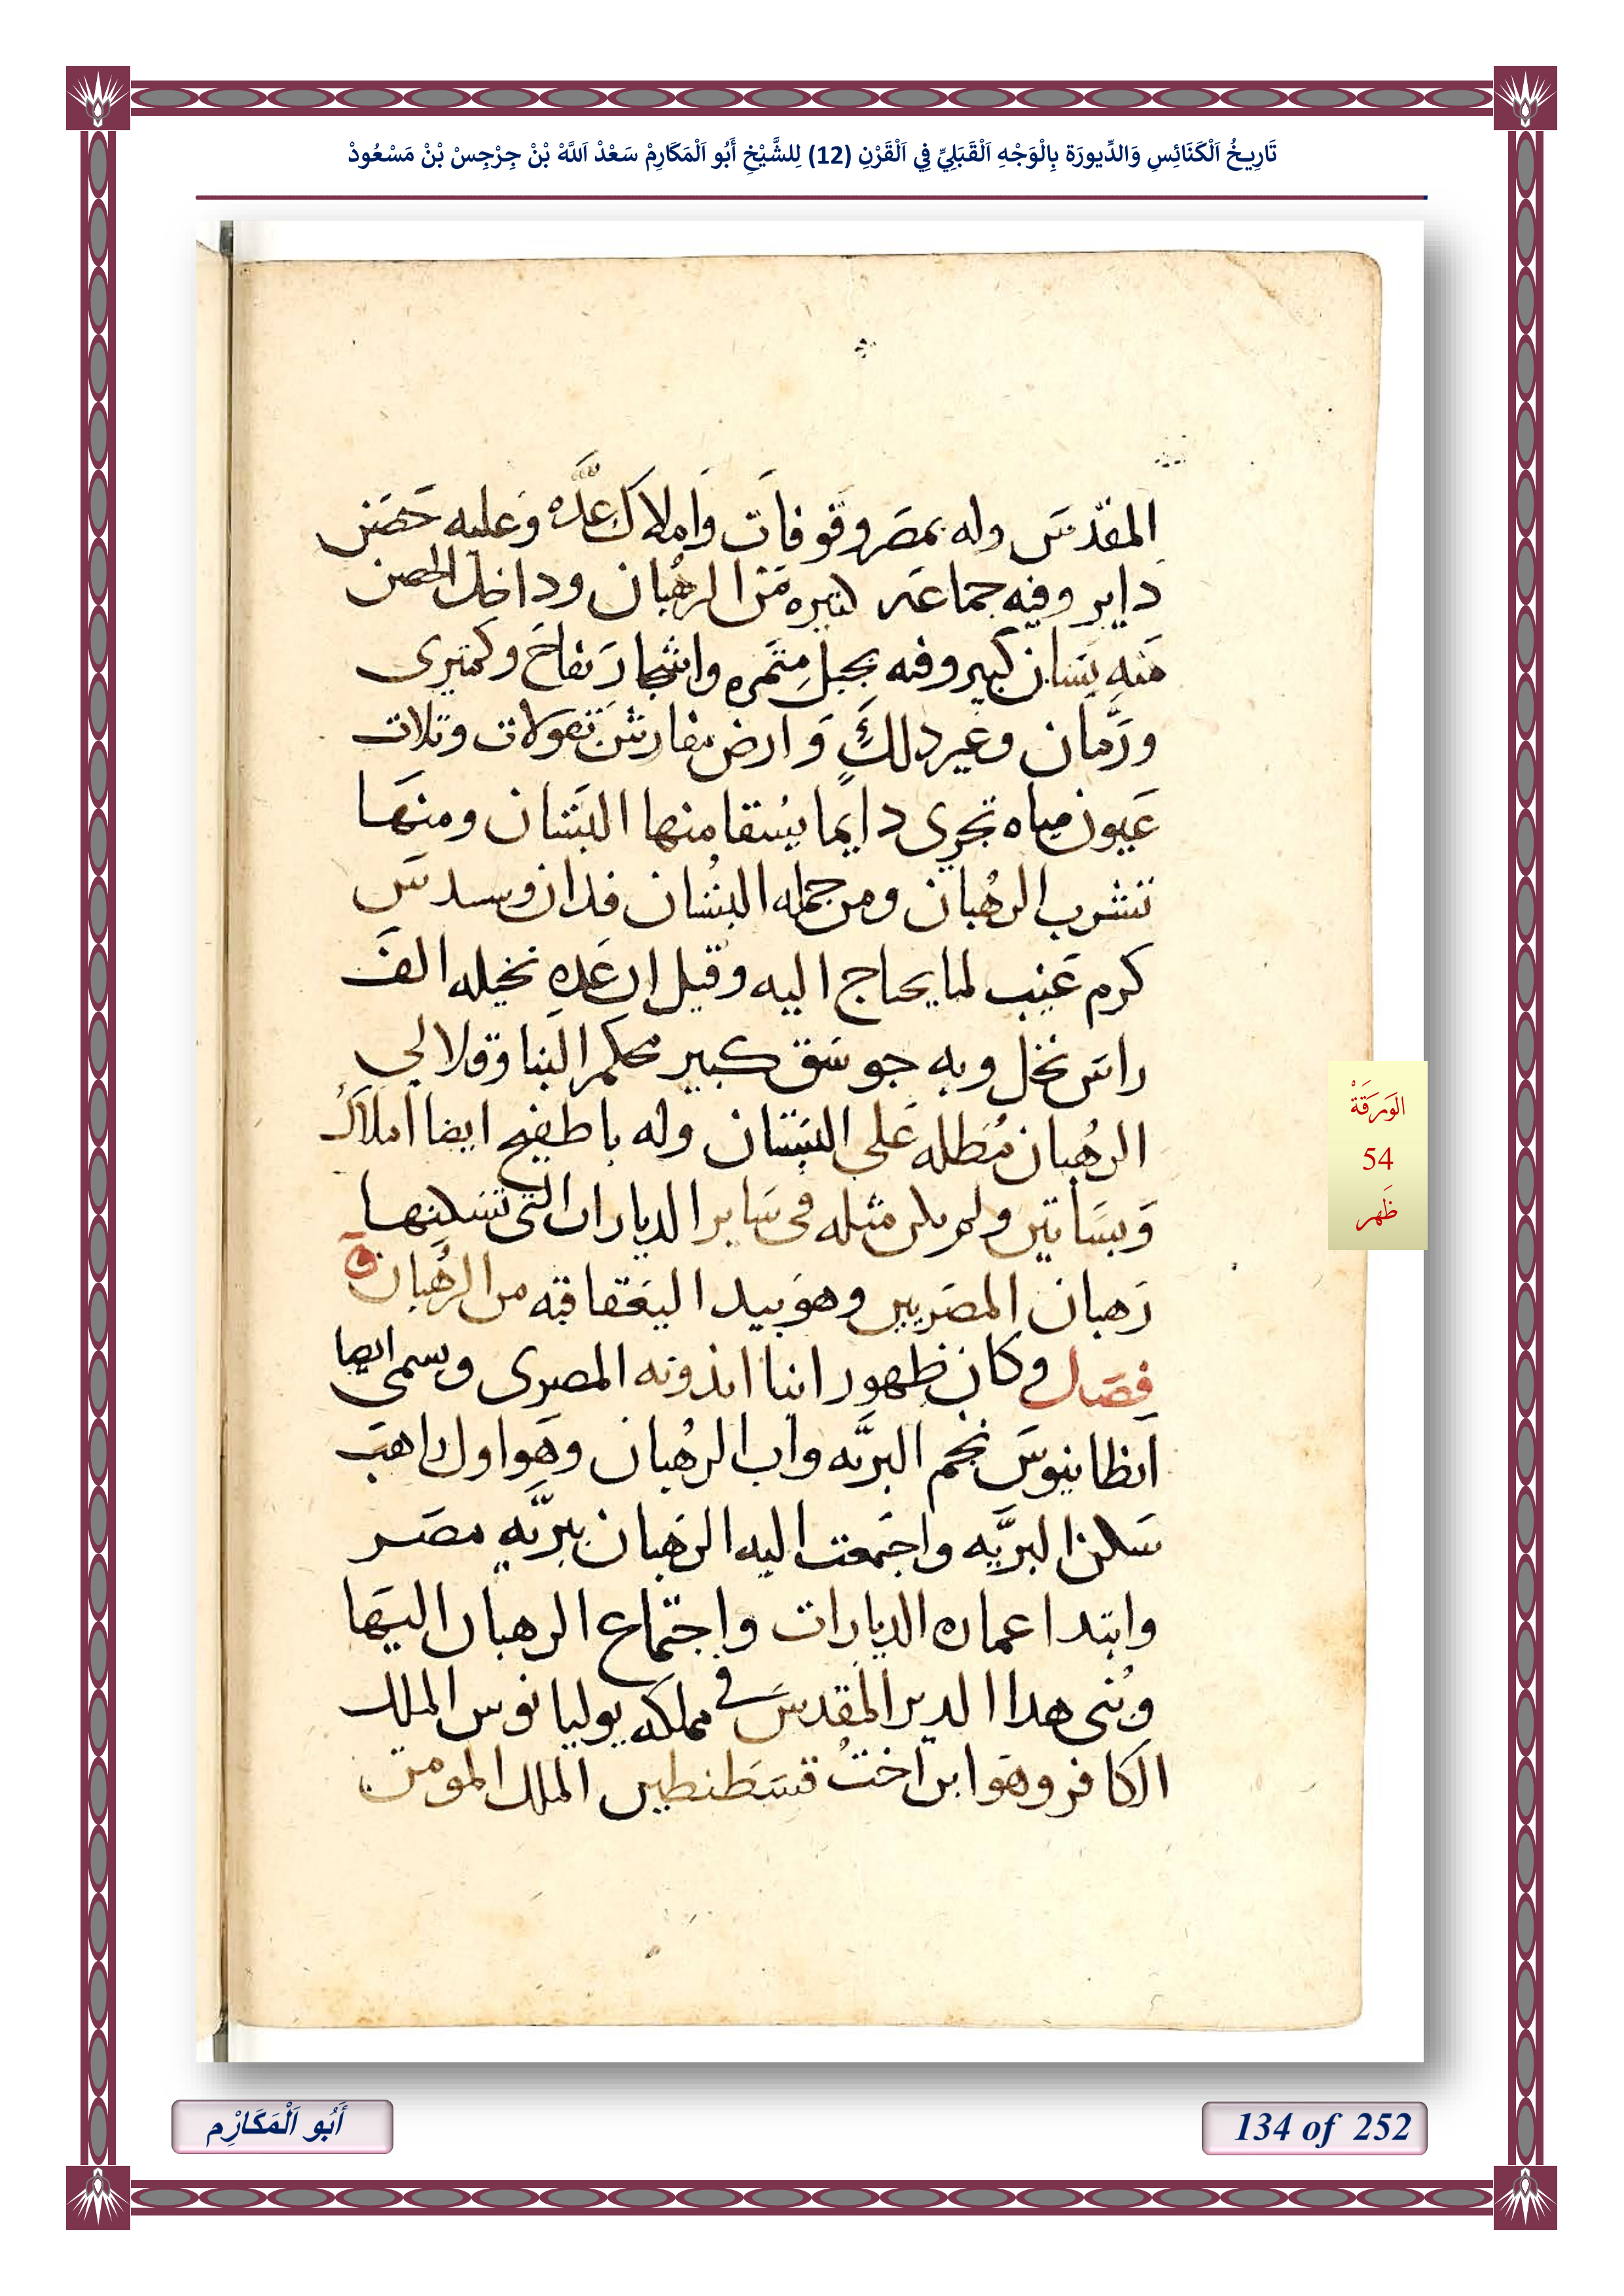 تَارِيخُ اَلْكَنَائِسِ وَالدِّيورَة بِالْوَجْهِ اَلْقَبَلِيِّ فِي اَلْقَرْنِ (12) لِلشَّيْخِ أَبُو اَلْمَكَارِمْ سَعْدْ اَللَّهْ بْنْ جِرْجِسْ بْنْ مَسْعُودْ
المقدس وله بمصر وقوفات واملاك عده وعليه حصن
داير وفيه جماعه كتيره من الرهبان وداخل الحصن
منه بستان كبير وفيه نخيل متمره واشجار تفاح وكمترى
ورمان وغير دلك وارض بقولات وتلات
عيون مياه تجرى دايما يستقا منها البستان ومنها
تشرب الرهبان ومن جمله البستان فدان وسدس
كرم عنب لما يحتاج اليه وقيل ان عده نخيله الف
راس نخل وبه جوسق كبير محكم البنا وقلالي
الرهبان مطله على البستان وله باطفيح ايضا املاك
وبساتين ولم يكن مثله فى ساير الديارات التى تسكنها
رهبان المصريين وهو بيد اليعقاقبه من الرهبان
فصل وكان ظهور انبا اندونه المصرى ويسمى ايضا
انطانيوس نجم البريه واب الرهبان وهو اول راهب
سكن البريه واجتمعت اليه الرهبان ببريه مصر
وابتدا عماره الديارات واجتماع الرهبان اليها
وبنى هدا الدير المقدس فى مملكه يوليانوس الملك
الكافر وهو ابن اخت قسطنطين الملك المومن
الوَرَقَةْ
54
ظَهر
أَبُو اَلْمَكَارِْم
134 of 252